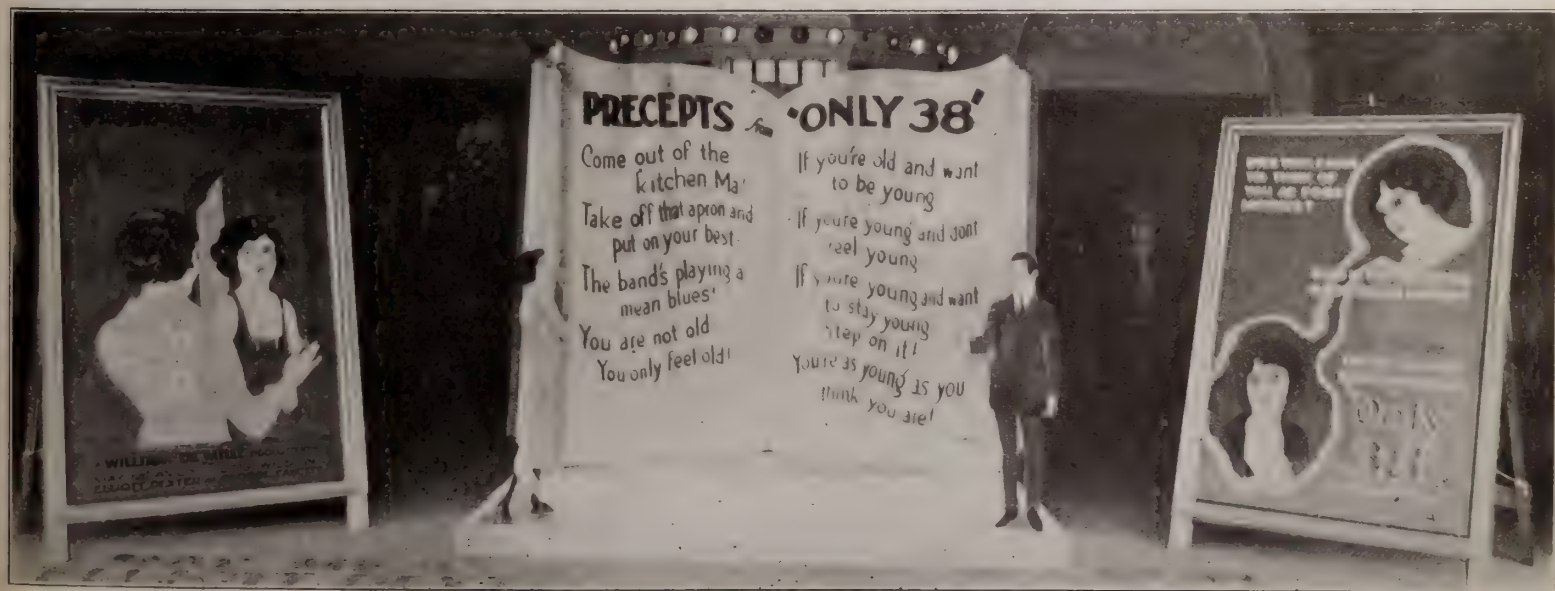 PRECEPTS from 'ONLY 38'
Come out of the
kitchen Ma'
Take off that apron and
put on your best.
The band's playing a
mean blues'
You are not old
You only feel old!
If you're old and want
to be young
If you're young and dont
feel young
If you're young and want
to stay young
Step on it!
You're as young as you
think you are!
WILLIAM DE MILLE
ELLIOTT DEXTER
Only
38